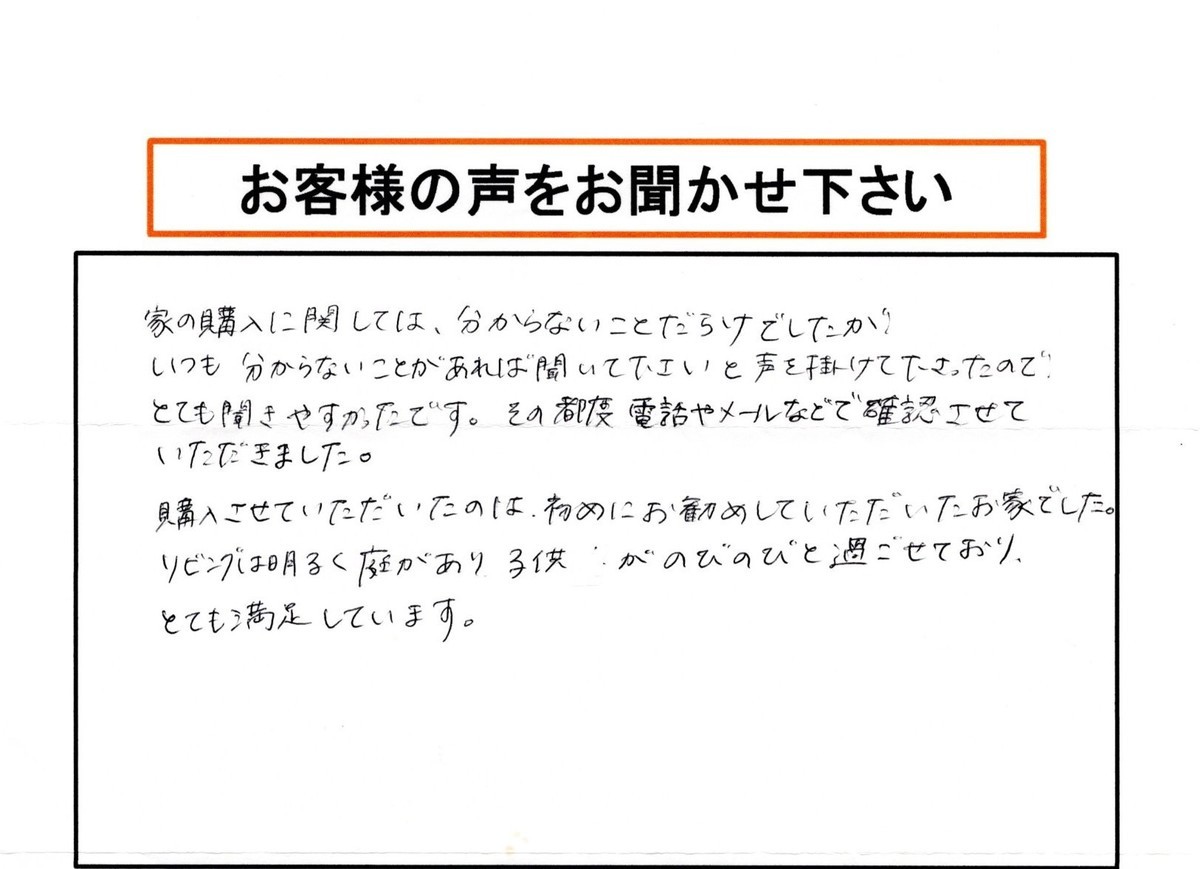 お客様の声をお聞かせ下さい
家の購入に関しては、分からないことだらけでしたが、
いつも 分からないことがあれば聞いて下さいと声を掛けて下さったので、
とても聞きやすかったです。その都度 電話やメールなどで確認させて
いただきました。
購入させていただいたのは、初めにお勧めしていただいたお家でした。
リビングは明るく庭があり 子供 がのびのびと過ごせており、
とても満足しています。